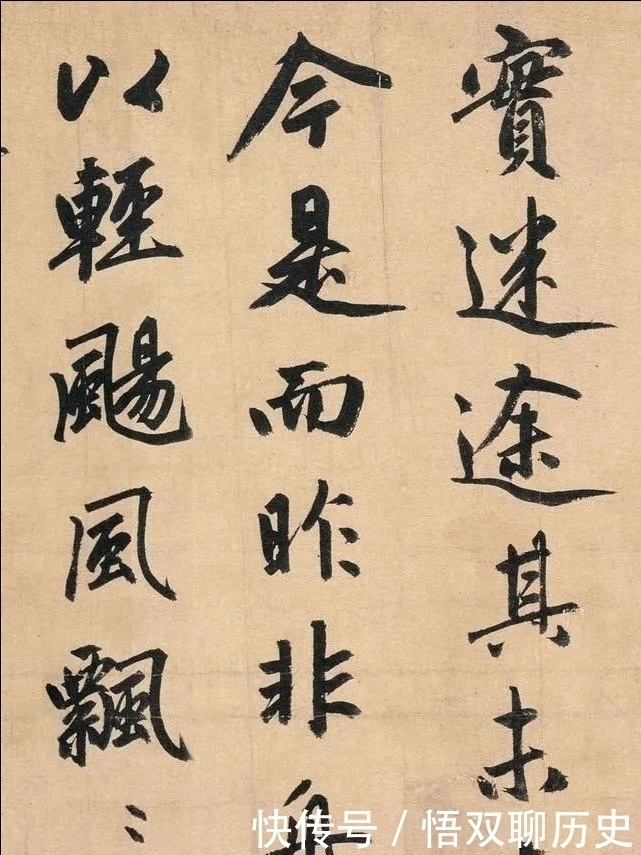 實迷途其未
今是而昨非
以輕颺風飄〻
快传号 / 悟双聊历史